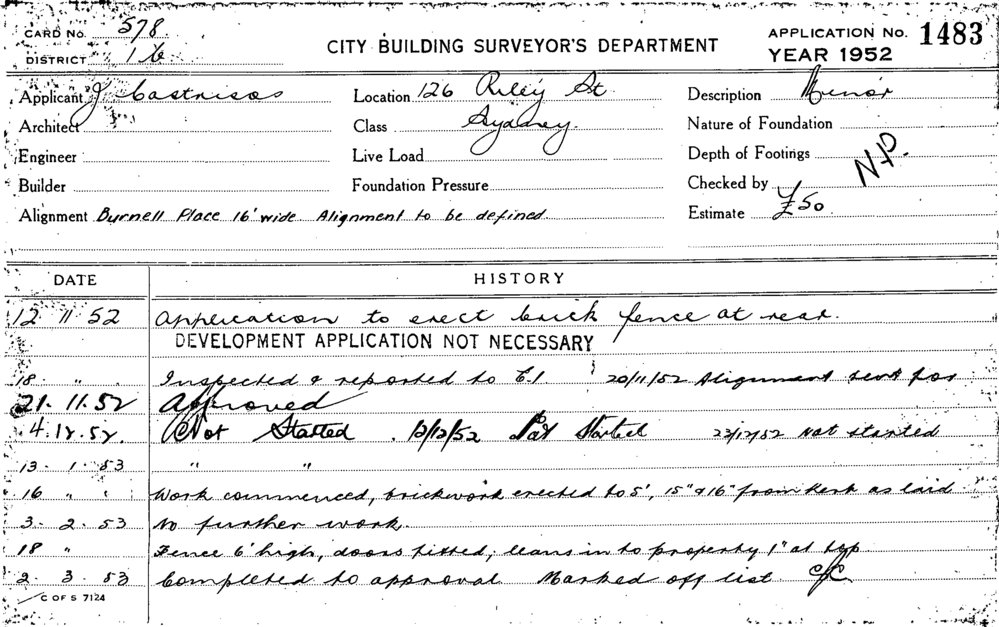 CARD No. 578
DISTRICT 16
CITY BUILDING SURVEYOR'S DEPARTMENT
APPLICATION No. 1483
YEAR 1952
Applicant J. Castrisos Location 126 Riley St. Description Minor
Architect Class Sydney. Nature of Foundation
Engineer Live Load Depth of Footings
Builder Foundation Pressure Checked by
Alignment Burnell Place 16' wide. Alignment to be defined. Estimate £50
DATE HISTORY
12 11 52 Application to erect brick fence at rear.
DEVELOPMENT APPLICATION NOT NECESSARY
18 " " Inspected & reported to C.I. 20/11/52 Alignment
21. 11. 52 Approved
4. 12. 52. Not Started. 12/12/52 Not Started 23/12/52 Not started
13. 1. 53 " "
16 " " Work commenced, brickwork erected to 5', 15" & 16" from kerb as laid
3. 2. 53 No further work.
18 " Fence 6' high, doors fitted, leans in to property 1" at top
2. 3. 53 Completed to approval Marked off list.
C OF S 7124